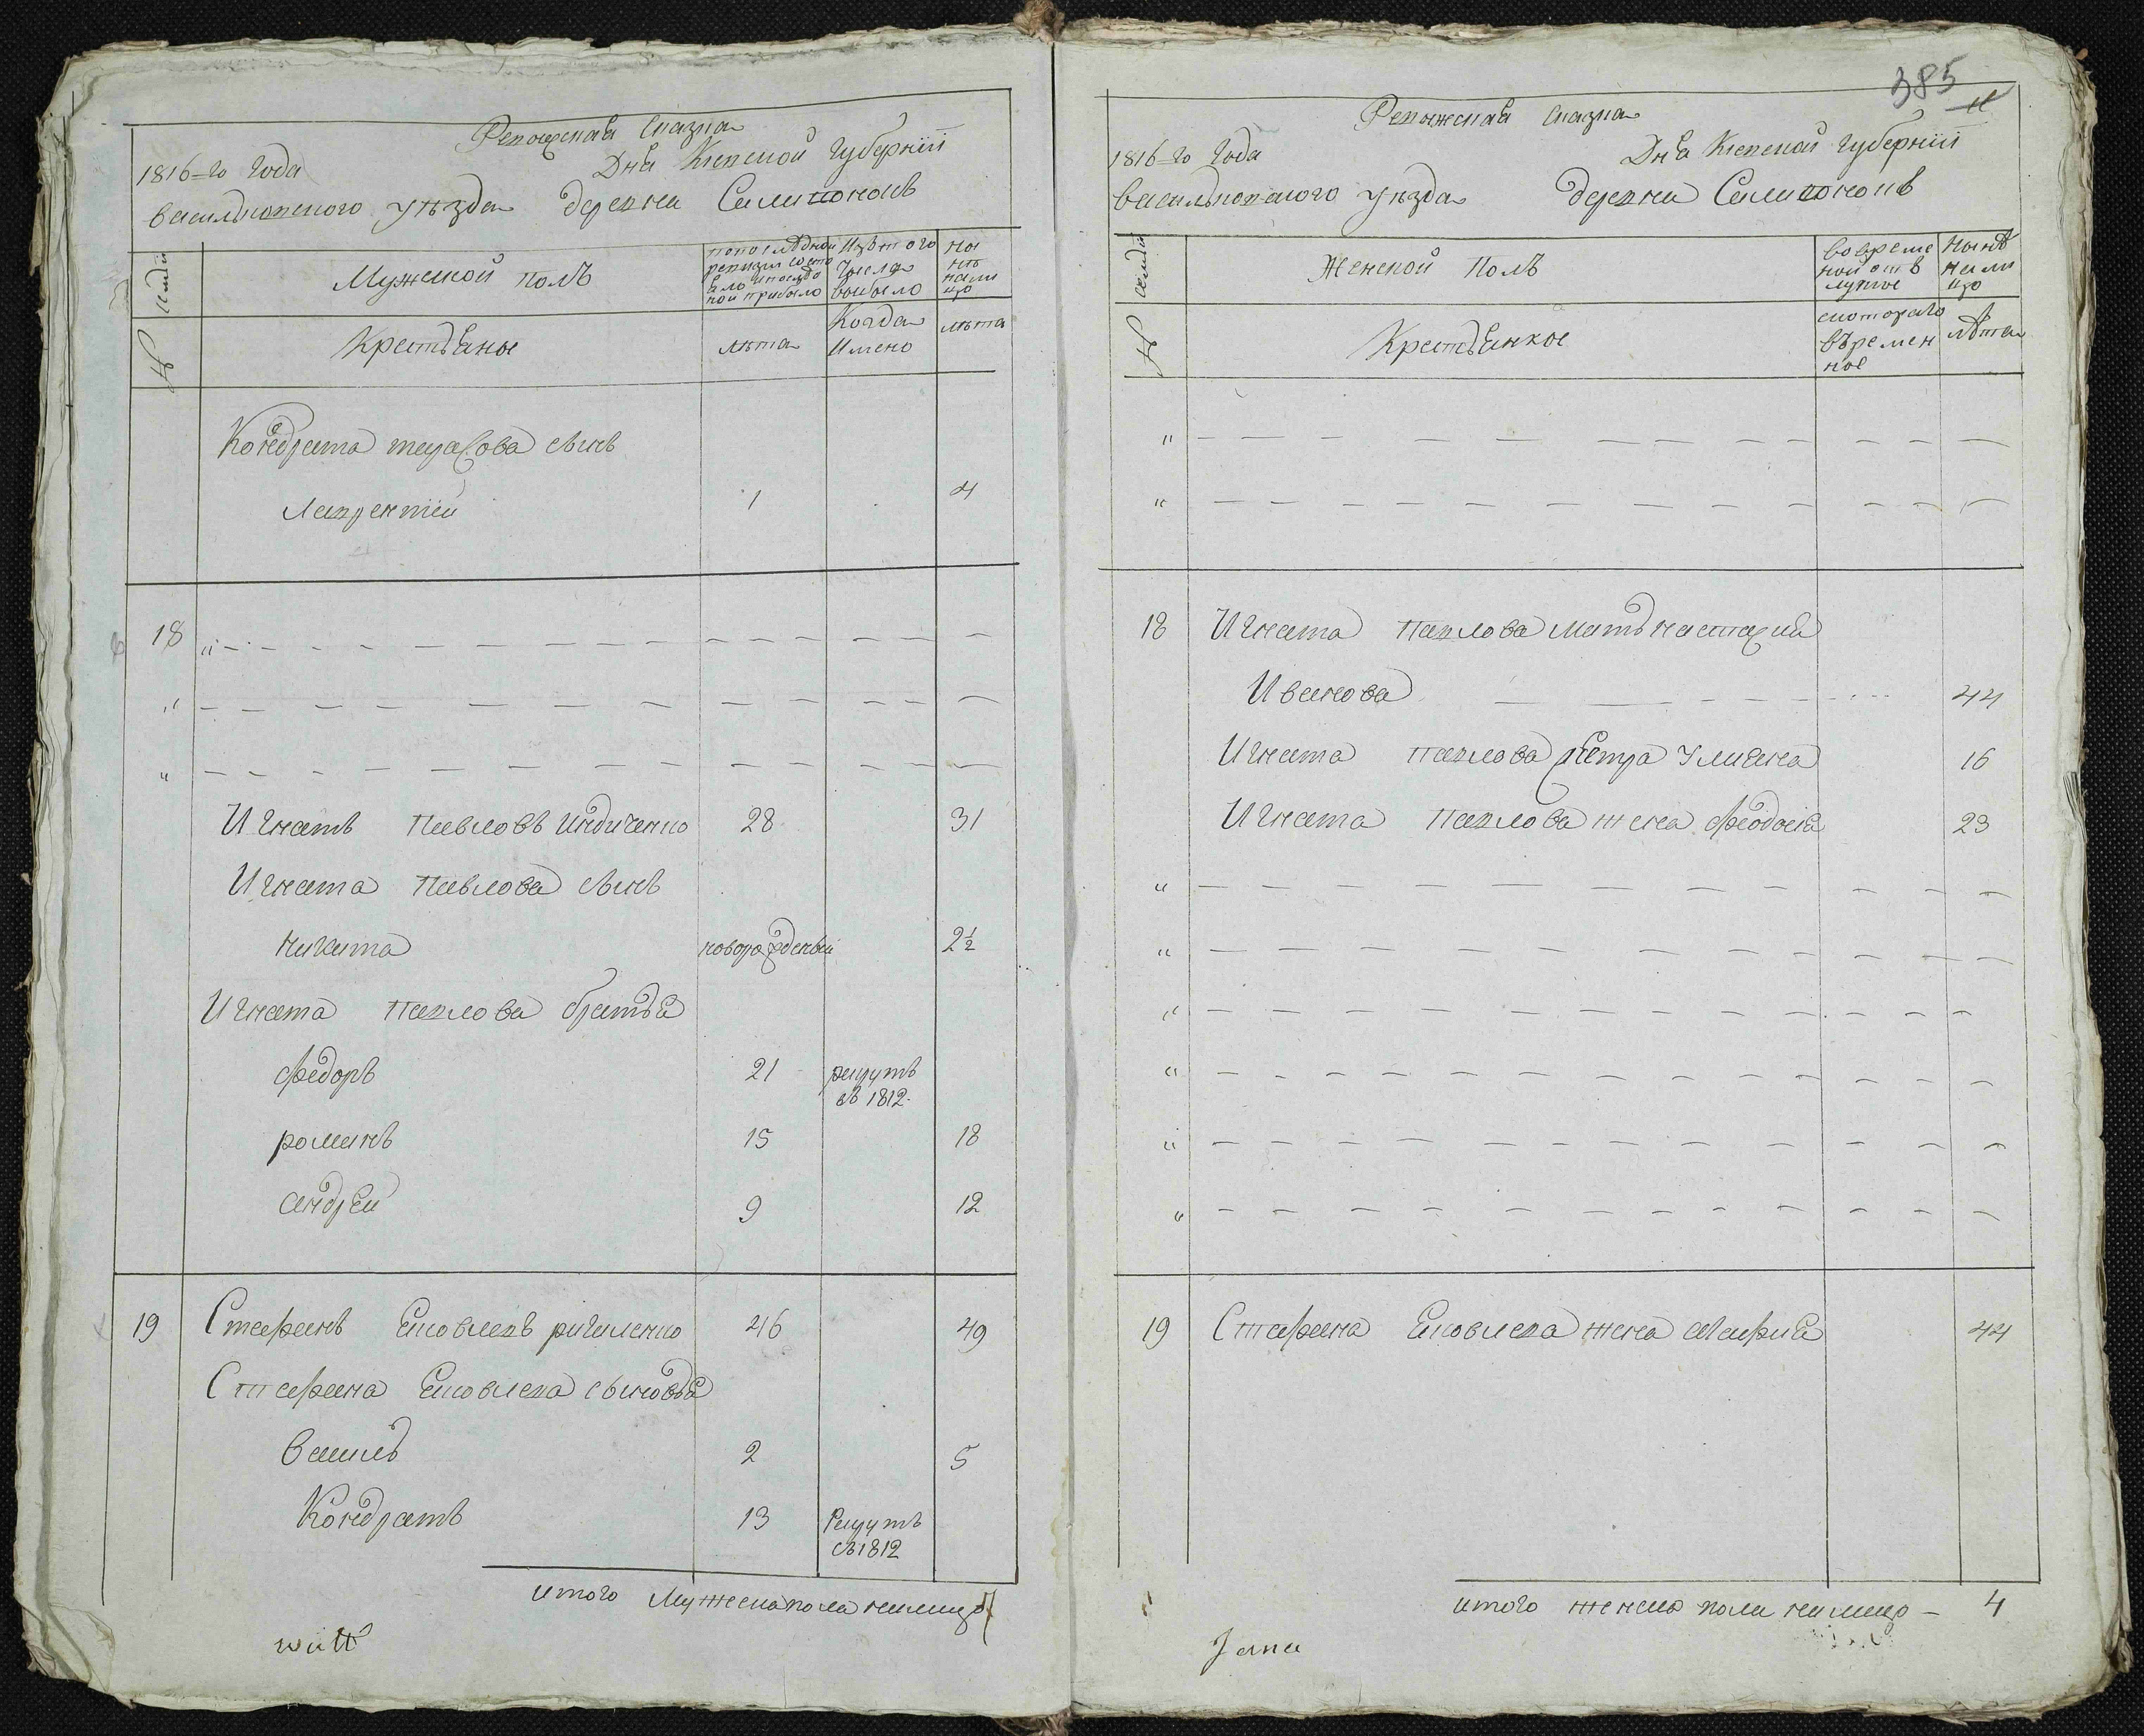 Ревижская сказка
1816-го года Дня Киевской губернїи
васильковского уѣзда деревни Селитонокъ
семьи
Мужеской полъ
попослѣдной ревизїи состояло и послѣдной прибыло
Изътого числа выбыло
Ныне на лицо
№
Крестьяне
лѣта
Когда имено
лѣта
Кондрата тарасова сынъ
Лаврентїй 1 4
18 "
"
"
Игнатъ Павловъ индиченко 28 31
Игната Павлова сынъ
никита новорожденый 2½
Игната Павлова братья
федоръ 21 рекрутъ
въ 1812
романъ 15 18
андрей 9 12
19 Стефанъ Яковлевъ ригиленко 46 49
Стефана Яковлева сыновья
василь 2 5
Кондратъ 13 Рекрутъ
въ 1812
итого мужеска пола налицо 7
385
Ревижская сказка
1816-го Года Дня Киевской губернїи
васильковского уѣзда деревни Селитонокъ
семьи
Женской полъ
во временной отлучке
Нынѣ на лицо
№
Крестьянкое
скоторого времен ное
лѣта
"
"
18 Игната Павлова мать настасия
Иванова 44
Игната павлова сестра Улияна 16
Игната павлова жена феодосия 23
"
"
"
"
"
"
19 Стефана Яковлева жена Мария 44
итого женско пола налицо – 4